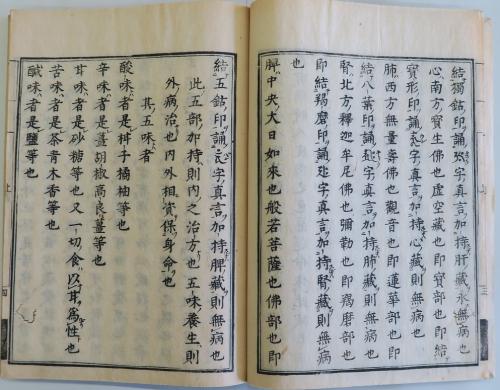 結獨鈷印誦𑖮𑖳𑖽字真言加持肝藏永無病也
心南方寶生佛也虛空藏也即寶部也即結
寶形印誦字真言加持心藏則無病也
肺西方無量壽佛也觀音也即蓮華部也即
結八葉印誦字真言加持肺藏則無病也
腎北方釋迦牟尼佛也彌勒也即羯磨部也
即結羯磨印誦字真言加持腎藏則無病
也
脾中央大日如來也般若菩薩也佛部也即
結五鈷印誦字真言加持脾藏則無病也
此五部加持則內之治方也五味養生則
外病治也內外相資保身命也
其五味者
酸味者是柑子橘柚等也
辛味者是薑胡椒高良薑等也
甘味者是砂糖等也又一切食以甘爲性也
苦味者是茶青木香等也
鹹味者是鹽等也